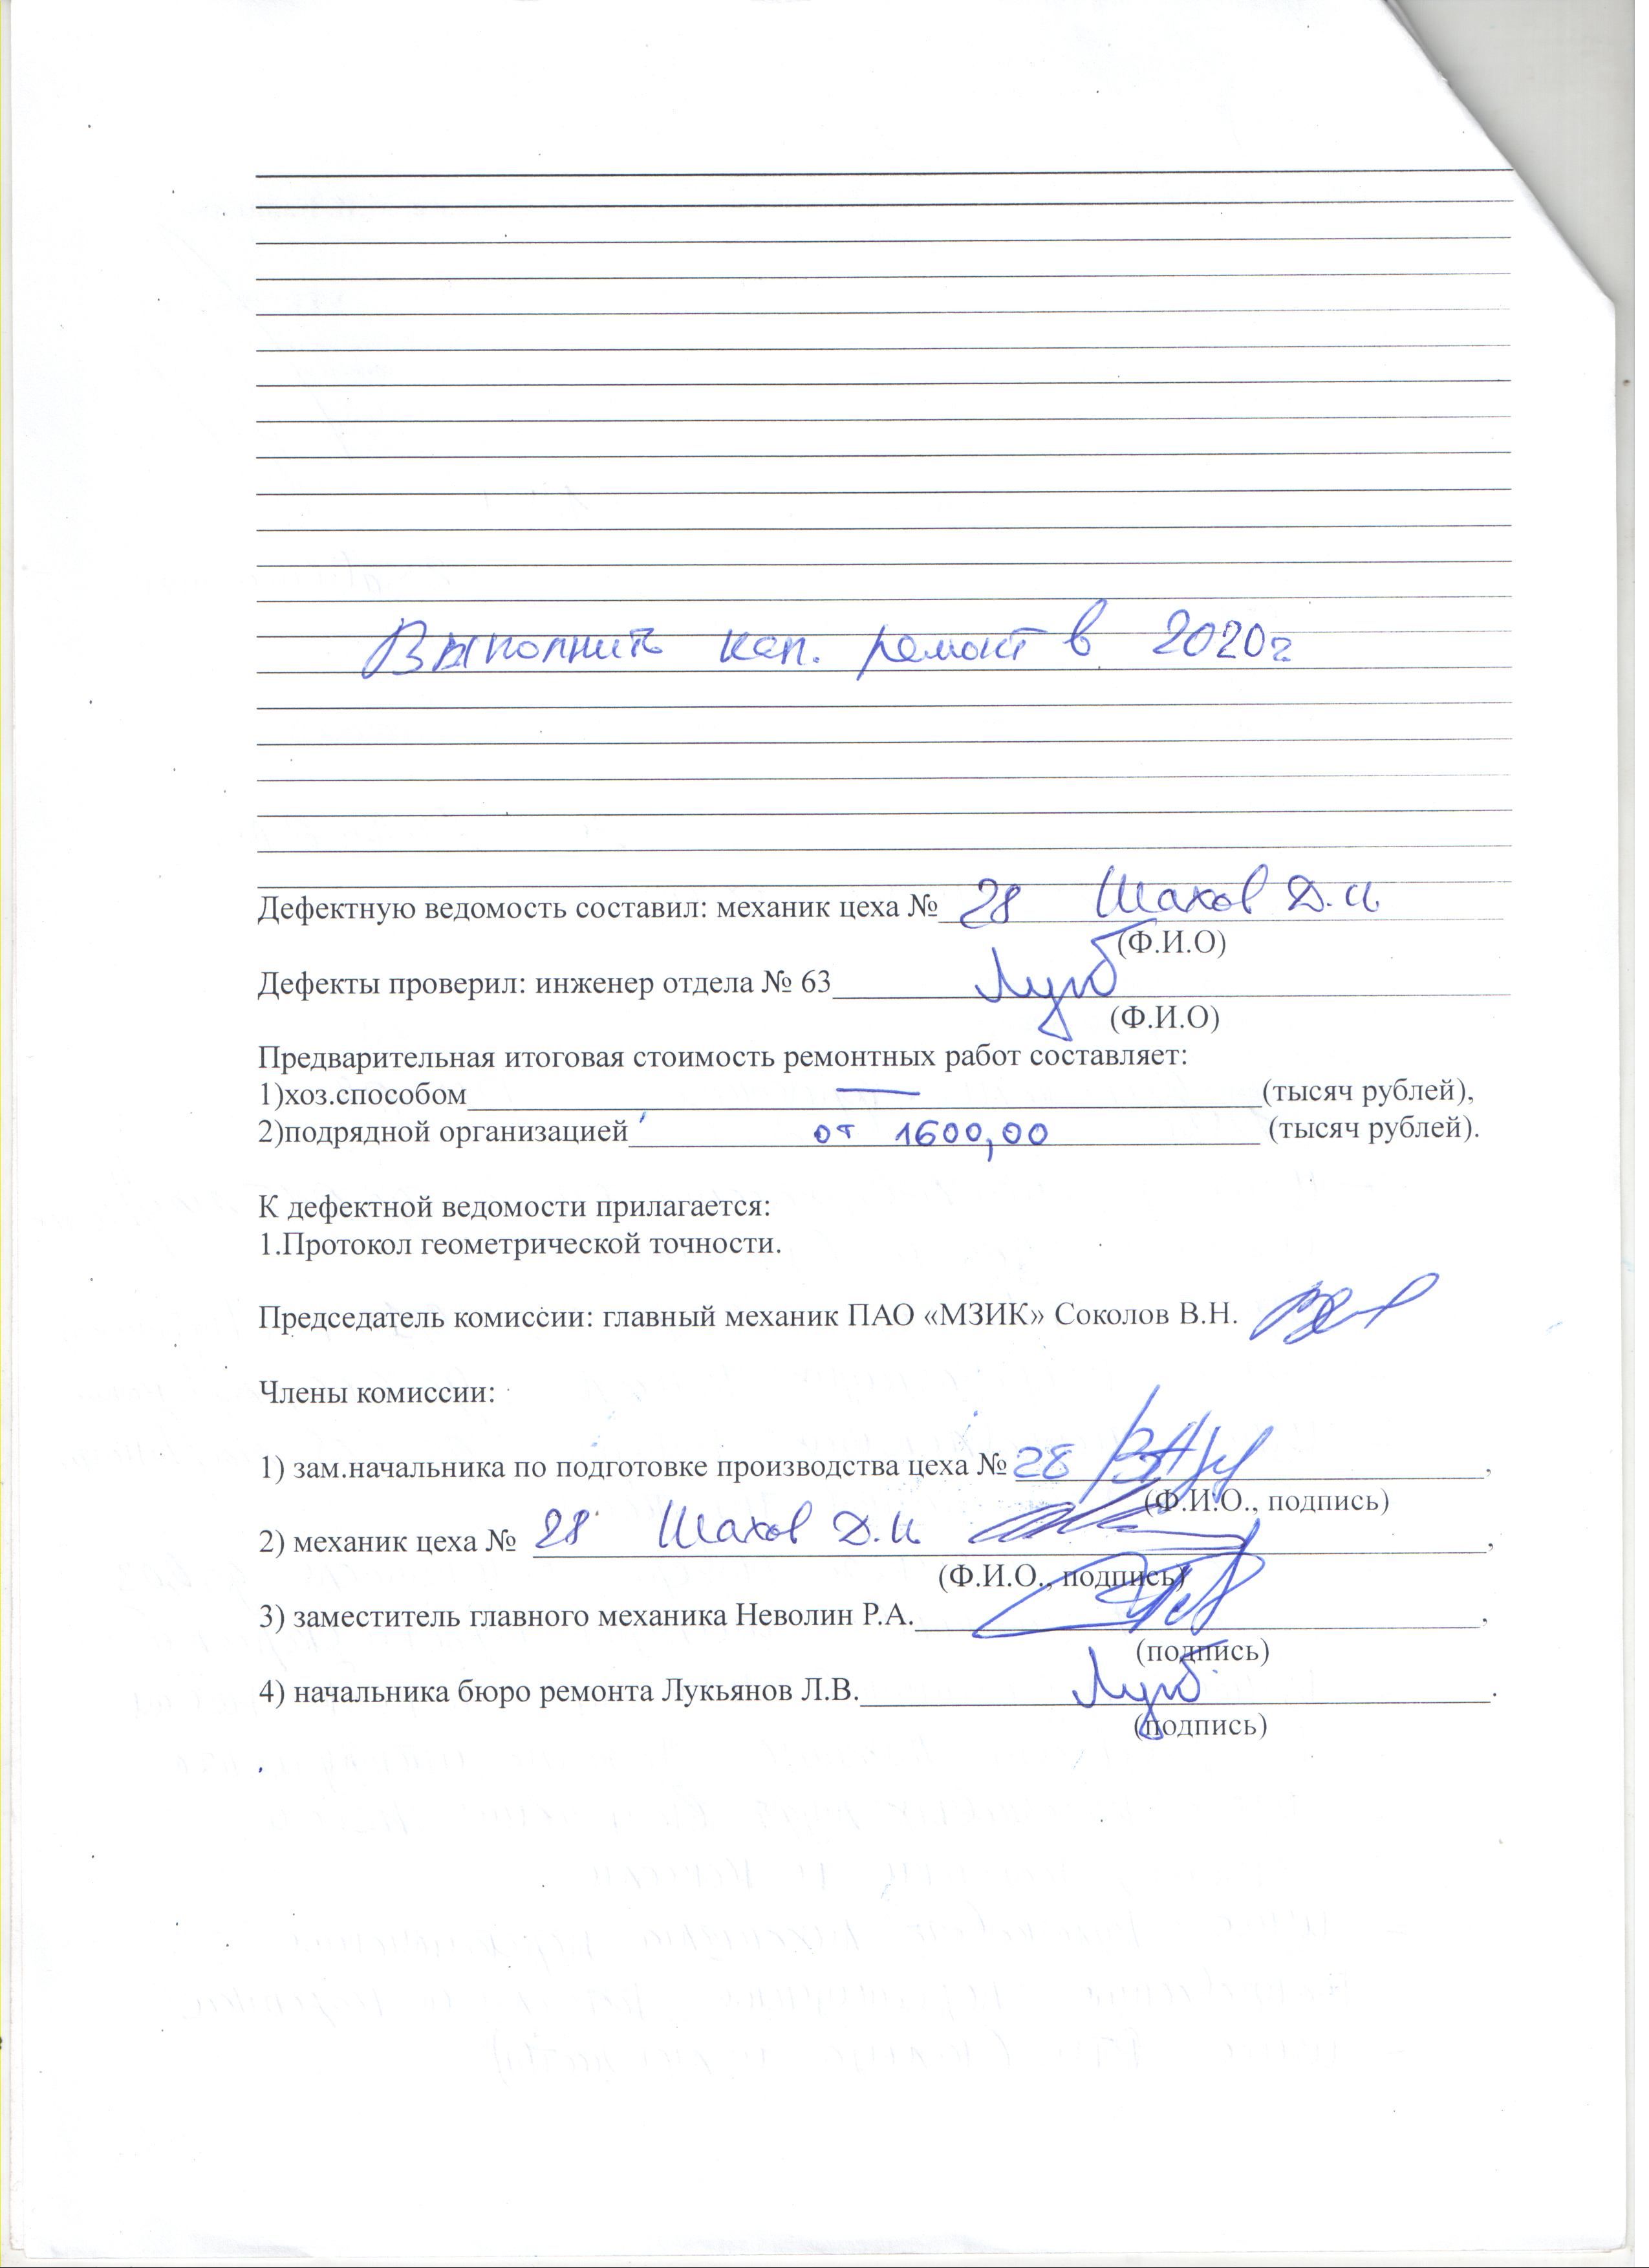 Выполнить кап. ремонт в 2020г
Дефектную ведомость составил: механик цеха № 28 Шахов Д.И
(Ф.И.О)
Дефекты проверил: инженер отдела № 63
(Ф.И.О)
Предварительная итоговая стоимость ремонтных работ составляет:
1)хоз.способом — (тысяч рублей),
2)подрядной организацией от 1600,00 (тысяч рублей).
К дефектной ведомости прилагается:
1.Протокол геометрической точности.
Председатель комиссии: главный механик ПАО «МЗИК» Соколов В.Н.
Члены комиссии:
1) зам.начальника по подготовке производства цеха № 28 ,
(Ф.И.О., подпись)
2) механик цеха № 28 Шахов Д.И ,
(Ф.И.О., подпись)
3) заместитель главного механика Неволин Р.А. ,
(подпись)
4) начальника бюро ремонта Лукьянов Л.В. .
(подпись)